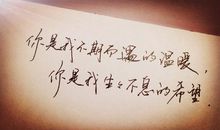 你是我不期而遇的温暖，
你是我生生不息的希望.